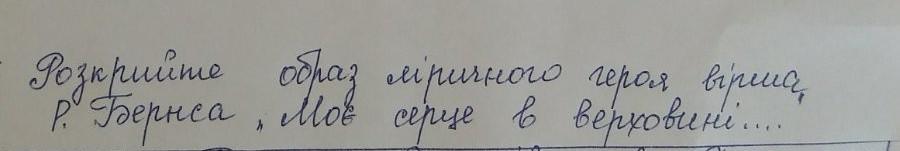 Розкрийте образ ліричного героя вірша
Р. Бернса „Моє серце в верховині...."